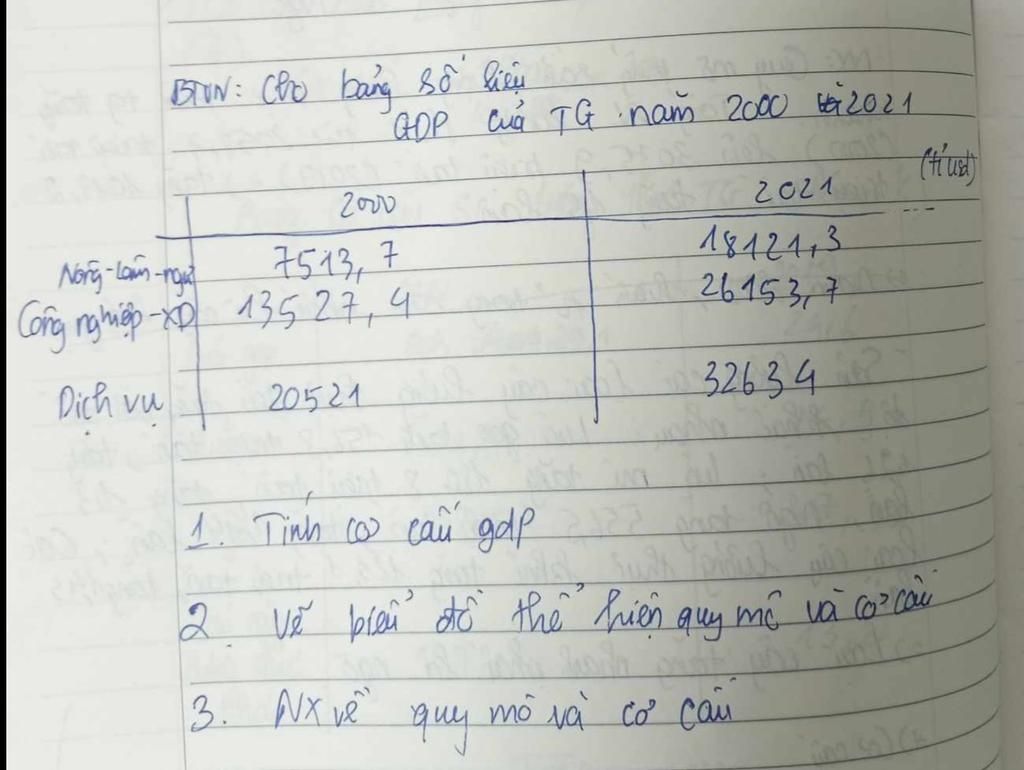 BTVN: Cho bảng số liệu
GDP của TG năm 2000 và 2021
(tỉ usd)
2000 2021
Nông-lâm-ngư 7513,7 18121,3
Công nghiệp-XD 13527,4 26153,7
Dịch vụ 20521 32634
1. Tính cơ cấu gdp
2. Vẽ biểu đồ thể hiện quy mô và cơ cấu
3. NX về quy mô và cơ cấu